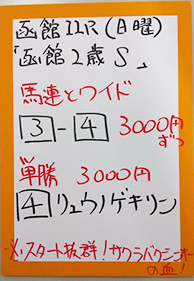 函館12R(日曜)
「函館2歳S」
馬連とワイド
3-4 3000円
ずつ
単勝 3000円
4 リュウノゲキリン
※スタート抜群!サクラバクシンオー
の血!